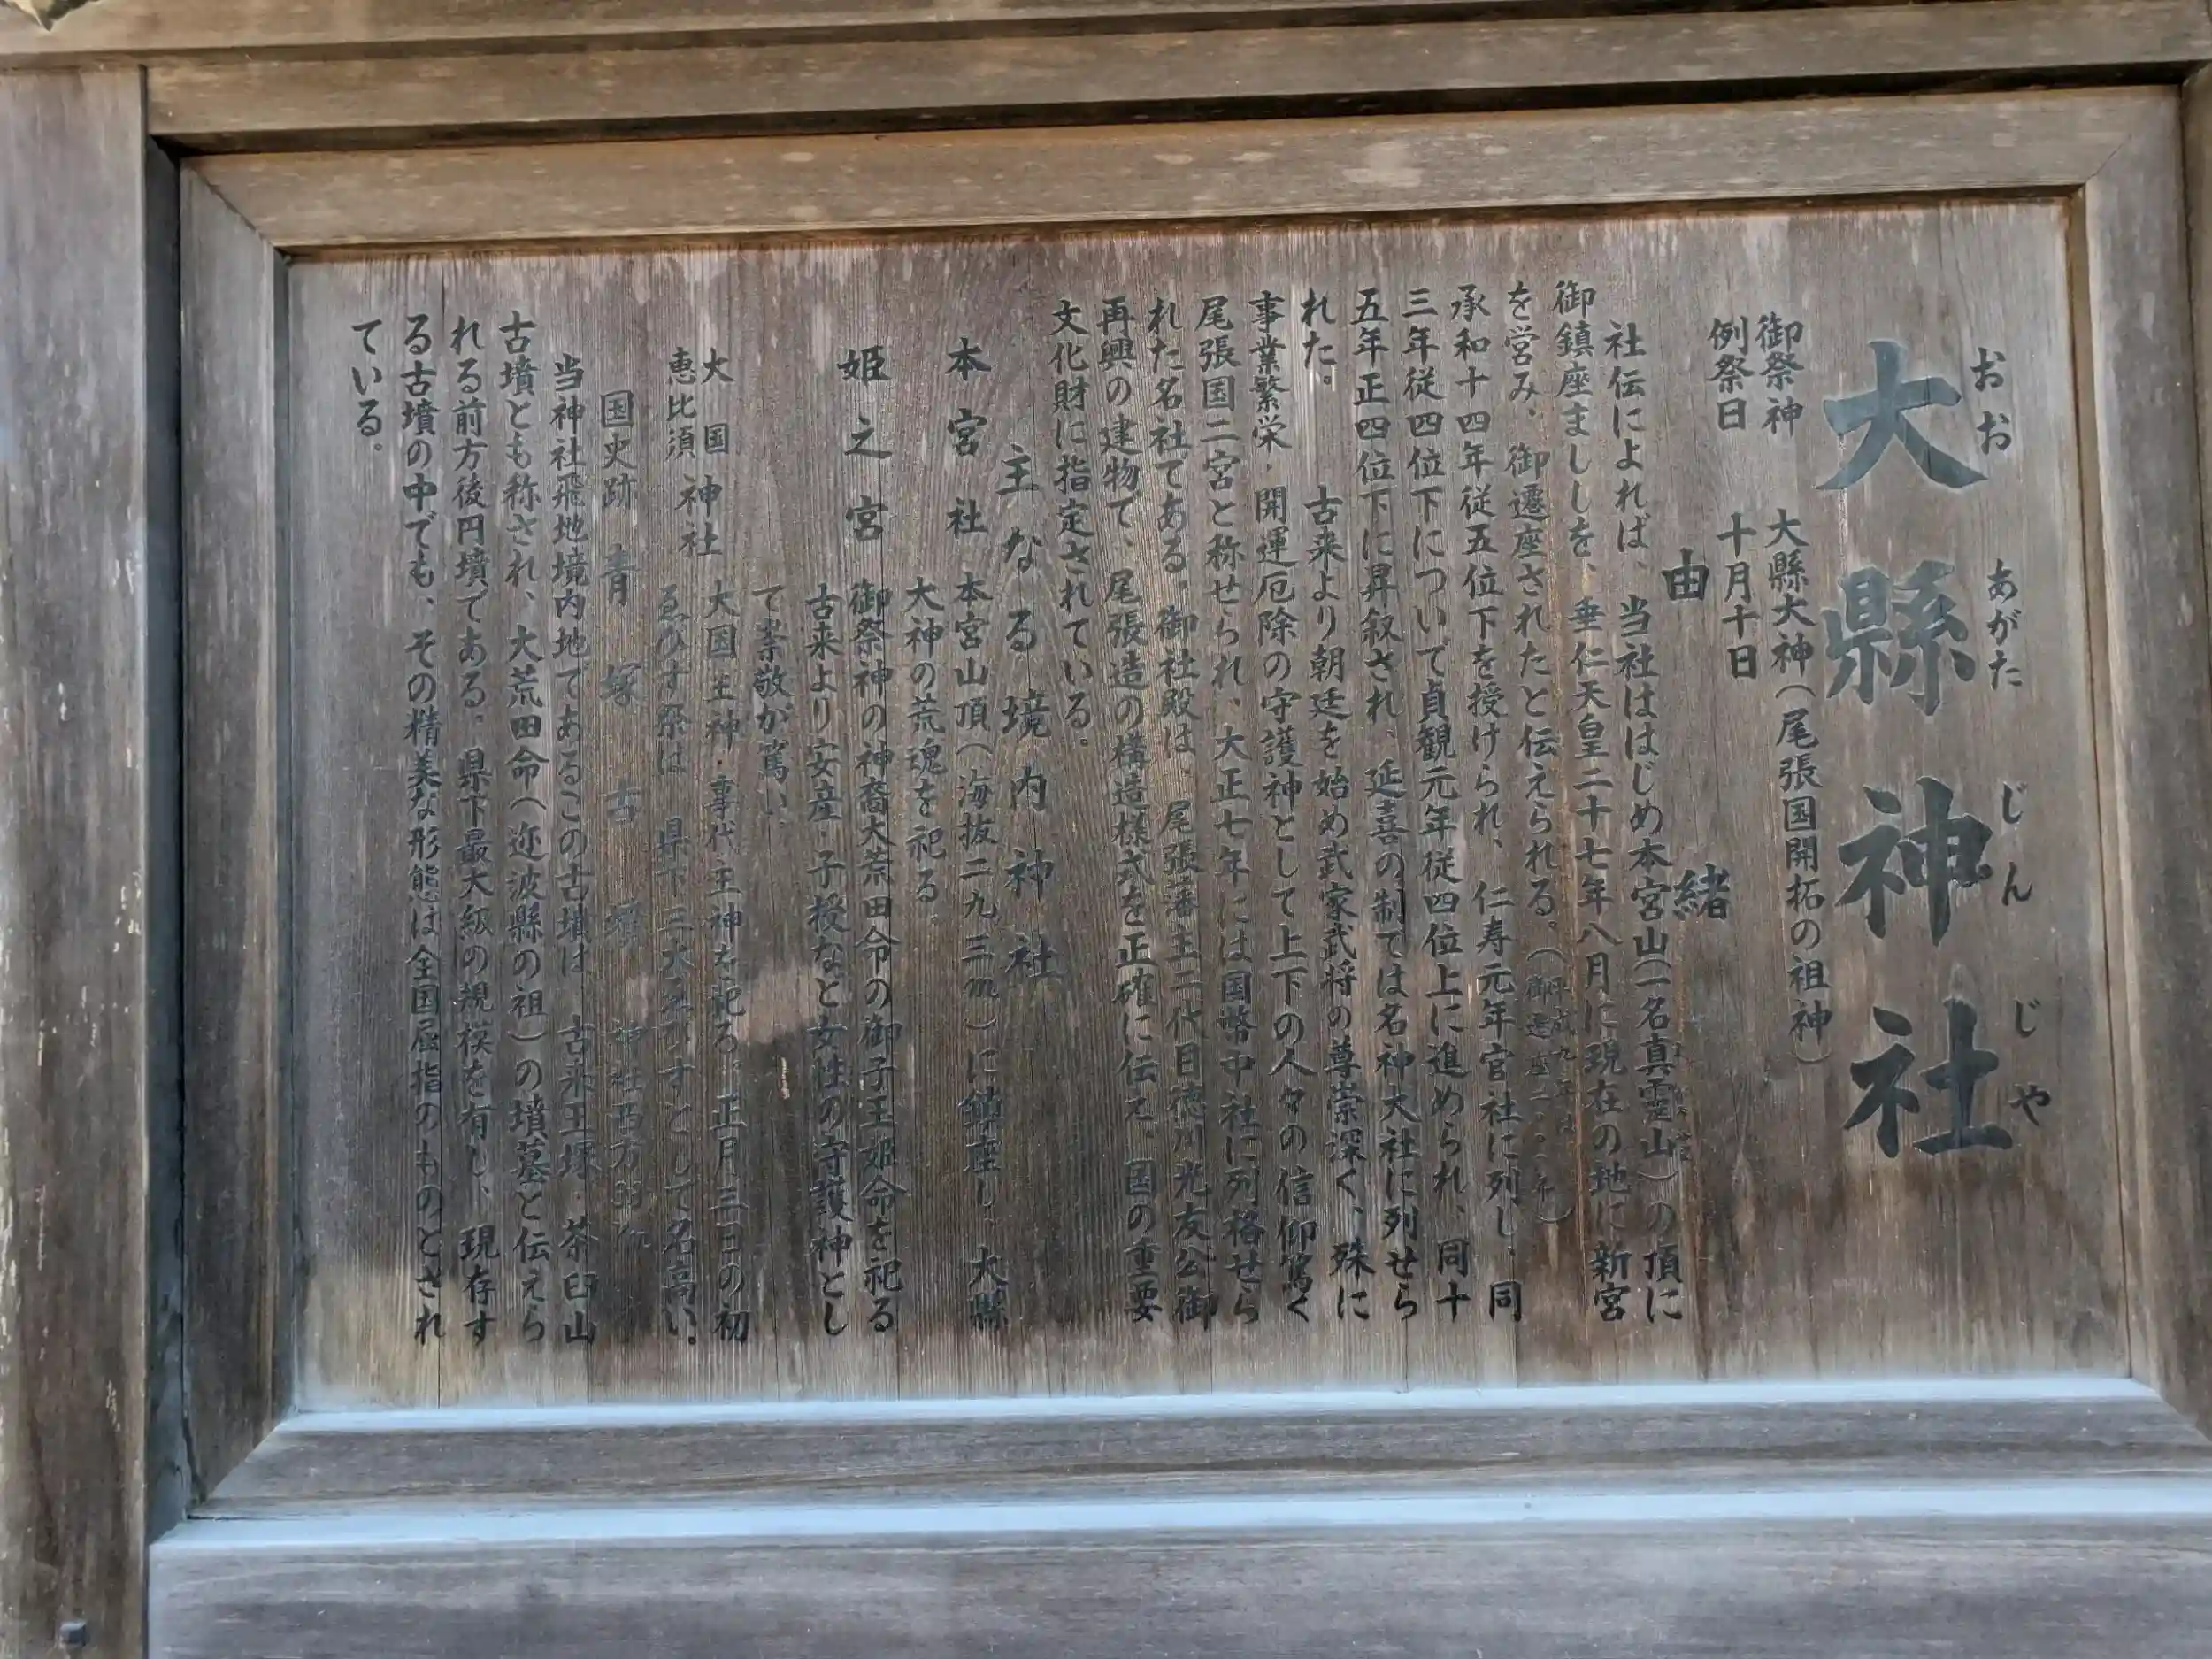 大縣神社
おお あがた じん じや
御祭神 大縣大神(尾張国開拓の祖神)
例祭日 十月十日
由緒
社伝によれば、当社ははじめ本宮山(一名真霊山)の頂に
御鎮座ましししを、垂仁天皇二十七年八月に現在の地に新宮
を営み、御遷座されたと伝えられる。
承和十四年従五位下を授けられ、仁寿元年官社に列し、同
三年従四位下について貞観元年従四位上に進められ、同十
五年正四位下に昇叙され、延喜の制では名神大社に列せら
れた。 古来より朝廷を始め武家武将の尊崇深く、殊に
事業繁栄・開運厄除の守護神として上下の人々の信仰篤く
尾張国二宮と称せられ、大正七年には国幣中社に列格せら
れた名社である。御社殿は、尾張藩主二代目徳川光友公御
再興の建物で、尾張造の構造様式を正確に伝え、国の重要
文化財に指定されている。
主なる境内神社
本宮社 本宮山頂(海抜二九三m)に鎮座し、大縣
大神の荒魂を祀る。
姫之宮 御祭神の神裔大荒田命の御子玉姫命を祀る
古来より安産・子授など女性の守護神とし
て崇敬が篤い、
大国恵比須神社 大国主神・事代主神を祀る。正月三日の初
ゑびす祭は 県下三大ゑびすとして名高い。
国史跡 青塚古墳 神社西方
当神社飛地境内地であるこの古墳は、古来王塚・茶臼山
古墳とも称され、大荒田命(迩波縣の祖)の墳墓と伝えら
れる前方後円墳である。県下最大級の規模を有し、現存す
る古墳の中でも、その精美な形態は全国屈指のものとされ
ている。